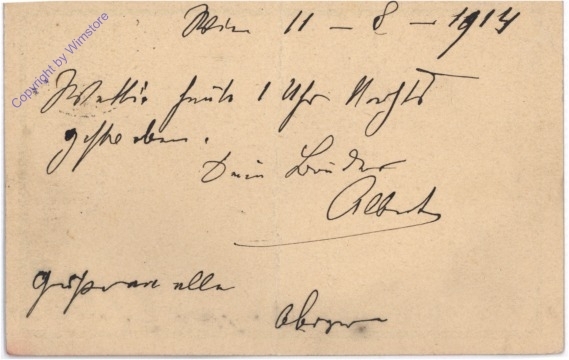 Wien 11 – 8 – 1914
heute 1 Uhr Nachts
gestorben.
Dein Bruder
Albert
alle
Copyright by Wimstore